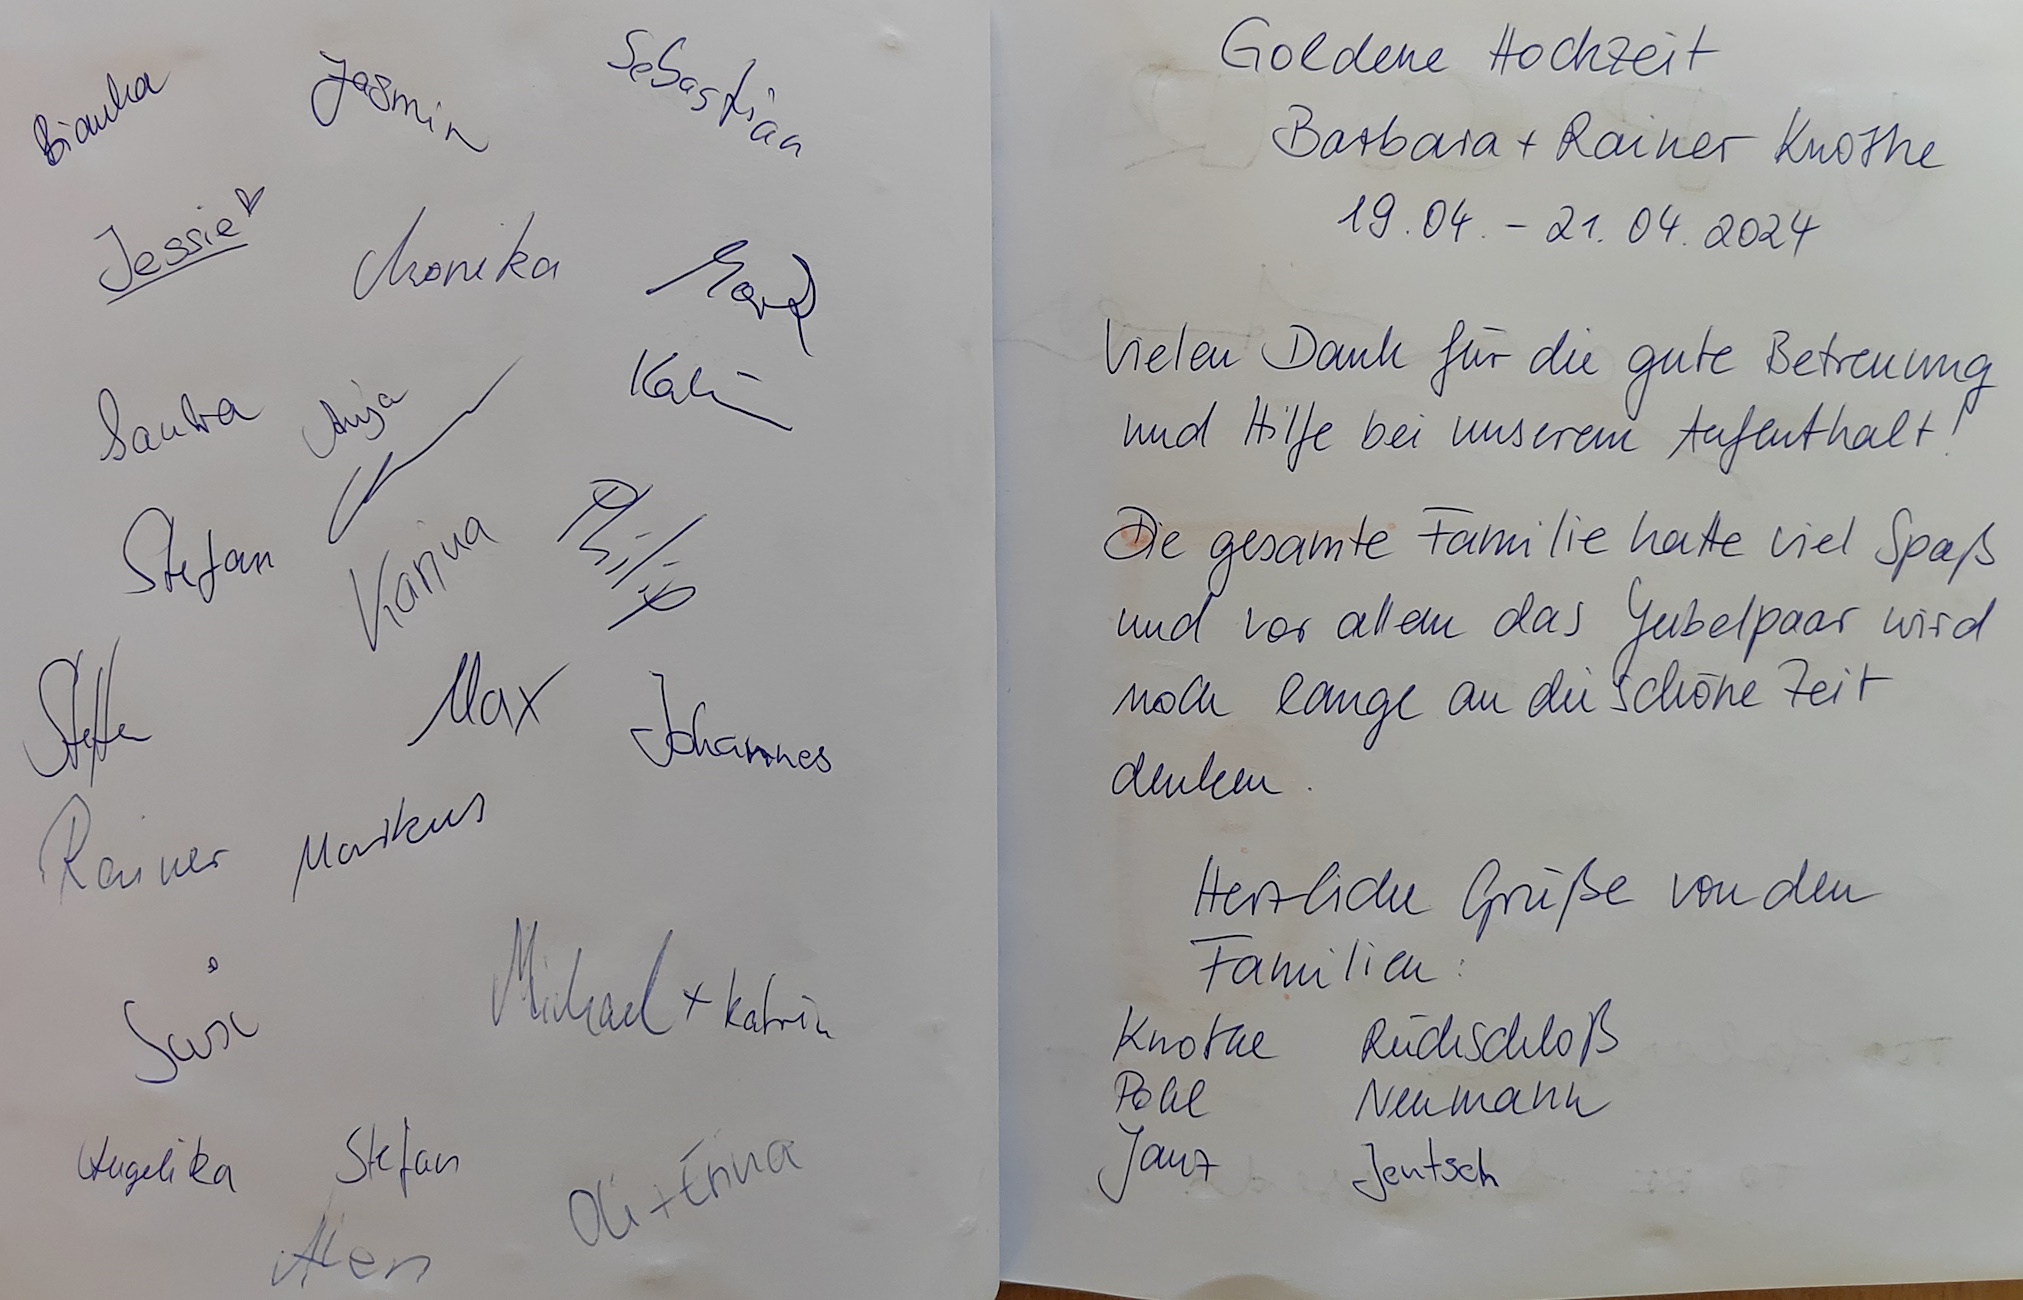 Bianka Jasmin Sebastian
Jessie♡ Monika Mark
Sandra Anja
Stefan Karina Philip
Steffen Max Johannes
Rainer Markus
Susi Michael + Katrin
Angelika Stefan Oli + Erina
Goldene Hochzeit
Barbara + Rainer Knothe
19.04. - 21.04.2024
Vielen Dank für die gute Betreuung
und Hilfe bei unserem Aufenthalt!
Die gesamte Familie hatte viel Spaß
und vor allem das Jubelpaar wird
noch lange an die schöne Zeit
denken.
Herzliche Grüße von den
Familien:
Knothe Rückschloß
Pohl Neumann
Janz Jentsch